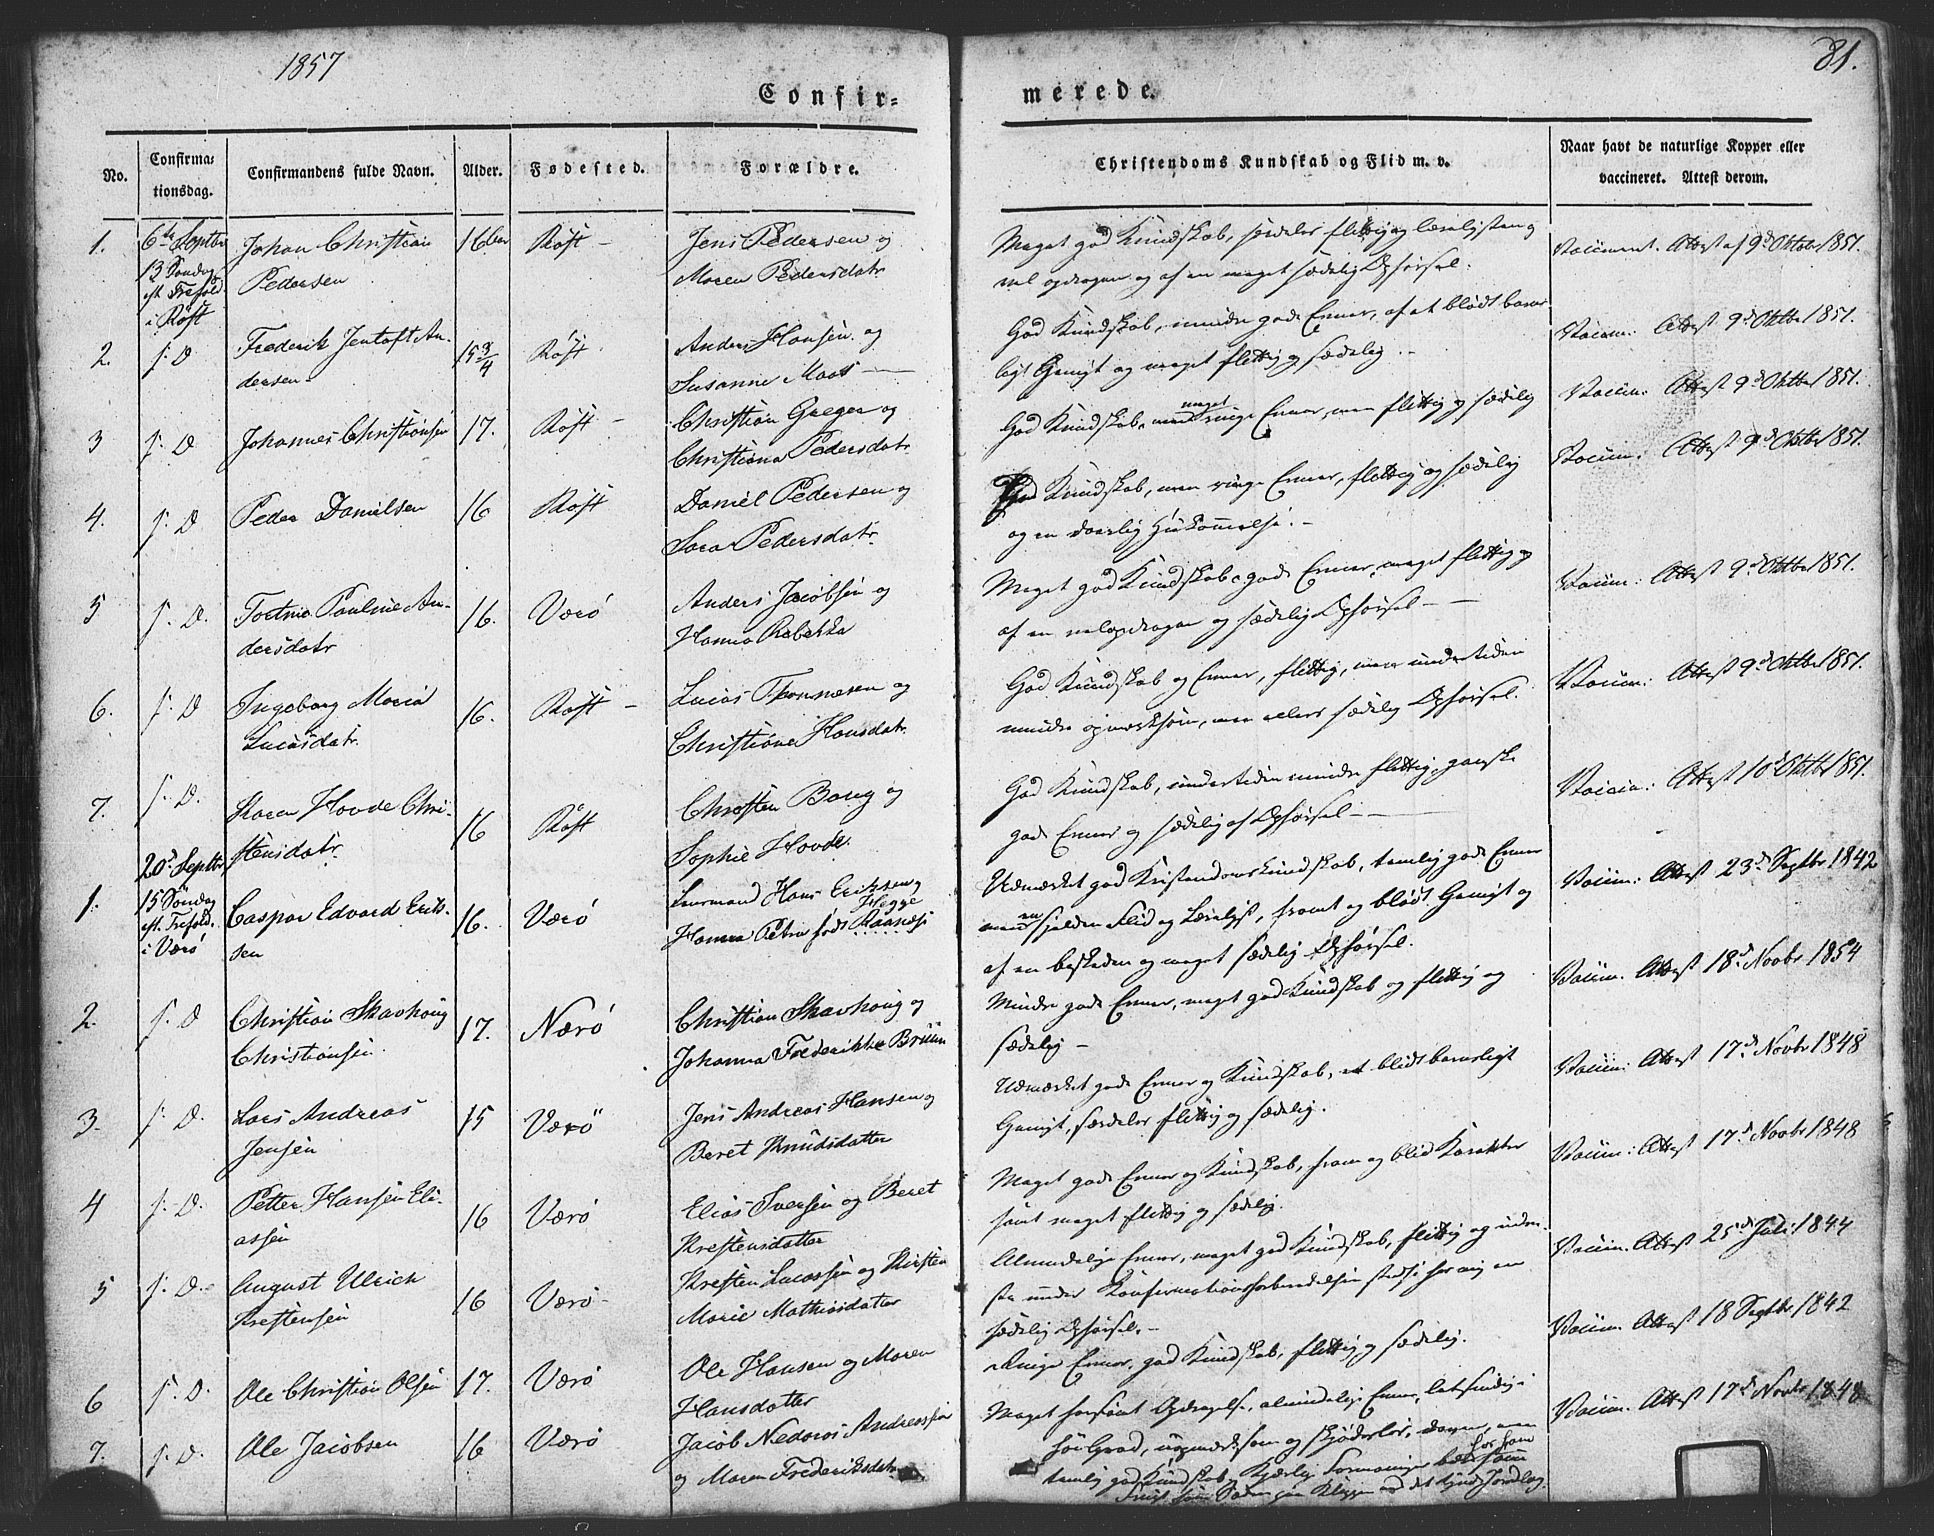 1857
81.
Confir=
merede.
No.
Confirma=
tionsdag.
Confirmandens fulde Navn.
Alder.
Fødested.
Forældre.
Christendoms Kundskab og Flid m. v.
Naar havt de naturlige Kopper eller
vaccineret. Attest derom.
1. 6te Septbr Johan Christian 16 Røst - Jens Pedersen og
13 Søndag Pedersen Maren Pedersdatr
eft. Trefold.
i Røst
Meget god Kundskab, særdeles flittig og lærelysten og
vel opdragen og af en meget sædelig Opførsel.
Attest af 9d Oktbr 1851.
2. s: D Frederik Jentoft An- 15 3/4 Røst Anders Hansen og
dersen - Susanne Moos
God Kundskab, mindre gode Evner, af et blødt barn
ligt Gemyt og meget flittig og sædelig. -
Vaccin: Attest 9d Oktbr 1851.
3 s: D Johannes Christiansen 17. Røst - Christian Greger og
Christiana Pedersdatr
God Kundskab, meget ringe Evner, men flittig og sædelig
Vaccin: Attest 9d Oktbr 1851.
4. s: D Peder Danielsen 16 Røst Daniel Pedersen og
Sara Pedersdatr.
God Kundskab, men ringe Evner, flittig og sædelig
og en daarlig Hukommelse. -
Vaccin: Attest 9d Oktbr 1851.
5 s: D. Pauline An- 16. Værö Anders Jacobsen og
dersdatr Hanna Rebekka
Meget god Kundskab, gode Evner, meget flittig og
af en velopdragen og sædelig Opførsel -
Vaccin: Attest 9d Oktbr 1851.
6. s: D Ingeborg Maria 16. Røst - Lucas Thommesen og
Lucasdatr. Christiane Hansdatr.
God Kundskab og Evner, flittig, men undertiden
mindre opmærksom, men ellers sædelig Opførsel.
Vaccin: Attest 9d Oktbr 1851.
7. s: D. Karen Hovde Chri- 16 Røst Christen Borg og
stensdatr. Sophie Hovde.
God Kundskab, undertiden mindre flittig, ganske
gode Evner og sædelig af Opførsel -
Vaccin: Attest 10d Oktbr 1851.
1. 20d Septbr Caspar Edvard Erik- 16. Værö Hans Eriksen og
15 Søndag sen Hanna Petra født Hegge
eft. Trefold.
i Værö
Udmærket god Kristendomskundskab, temlig gode Evner
med en sjelden Flid og Lærelyst, fromt og blødt Gemyt og
af en beskeden og meget sædelig Opførsel.
Vaccin: Attest 23d Septbr 1842
2. s: D Christian Skavhoug 17. Nærö Christian Skavhoug og
Christiansen Johanna Frederikke Bruun
Mindre gode Evner, meget god Kundskab og flittig og
sædelig -
Vaccin. Attest 18d Novbr 1854
3. s: D. Lars Andreas 15 Værö Jens Andreas Hansen og
Jensen Beret Knudsdatter
Udmærket gode Evner og Kundskab, et blidt barnligt
Gemyt, særdeles flittig og sædelig.
Vaccin: Attest 17d Novbr 1848
4 s: D. Petter Hansen Eli- 16 Værö Elias Iversen og Beret
assen Krestensdatter
Meget gode Evner og Kundskab, from og blid Karakter
samt meget flittig og sædelig.
Vaccin: Attest 17d Novbr 1848
5 s: D. August Ulrich 16 Værö Kresten Lucassen og Kirsten
Krestensen Marie Mathiasdatter
Almindelige Evner, meget god Kundskab, flittig og
under Konfirmationsforberedelsen
sædelig Opførsel. -
Vaccin. Attest 25d Juli 1844
6 s: D. Ole Christian Olsen 17. Værö Ole Hansen og Maren
Hansdatter
Ringe Evner, god Kundskab, flittig og sædelig.
Vaccin. Attest 18 Septbr 1842
7. s: D. Ole Jacobsen 16 Værö Jacob Andreassen
og Maren Frederiksdatr
Meget forsømt Opdragelse, almindelige Evner, letsindig i
høi Grad, uopmærksom og skjødesløs,
temlig god Kundskab. Kjærlig Formaninger
Vaccin. Attest 17d Novbr 1848